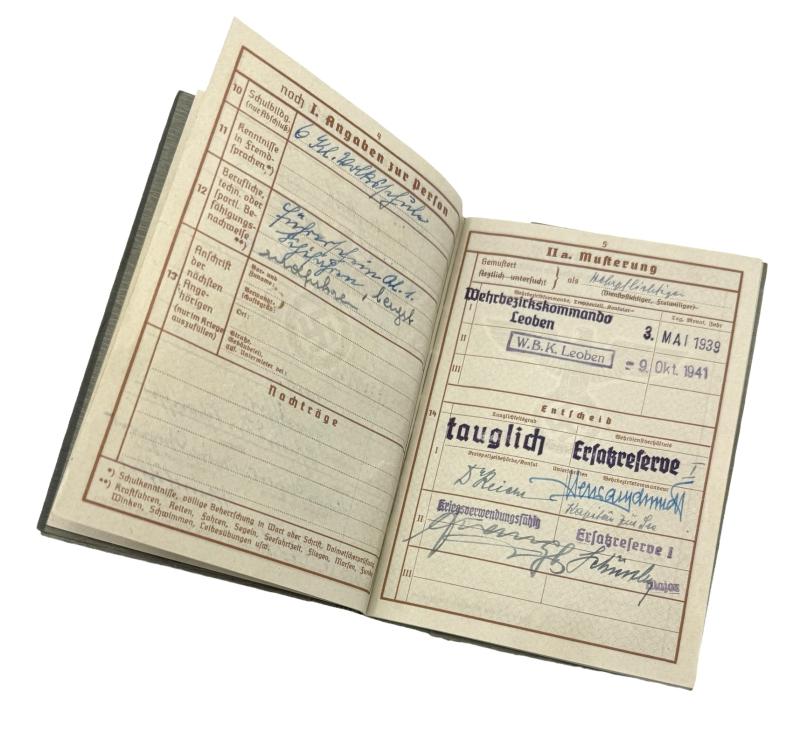 4
noch I. Angaben zur Person
10 Schulbildg. (nur Abschluß)
6 Kl. Volksschule
11 Kenntnisse in Fremd-
sprachen *)
12 Berufliche,
techn. oder
sportl. Be-
fähigungs-
nachweise
**)
Führerschein Kl. 1.
13 Anschrift
der
nächsten
Ange-
hörigen
(nur im Kriege
auszufüllen)
Vor- und
Zuname:
Verwandt-
Ort:
Straße,
Nachträge
*) Schulkenntnisse, völlige Beherrschung in Wort oder Schrift, Dolmetscherprüfung
**) Kraftfahren, Reiten, Fahren, Segeln, Seefahrzeit, Fliegen, Morsen, Funken
Winken, Schwimmen, Leibesübungen usw.
5
II a. Musterung
Gemustert
Ärztlich untersucht
als Wehrpflichtiger
(Dienstpflichtiger, Freiwilliger)
Tag, Monat, Jahr
I Wehrbezirkskommando
Leoben 3. MAI 1939
II W.B.K. Leoben - 9. Okt. 1941
III
Entscheid
14 Tauglichkeitsgrad Wehrdienstverhältnis
I tauglich Ersatzreserve I
Unterschriften
Kapitän zur See
II Kriegsverwendungsfähig Ersatzreserve I
Major
III